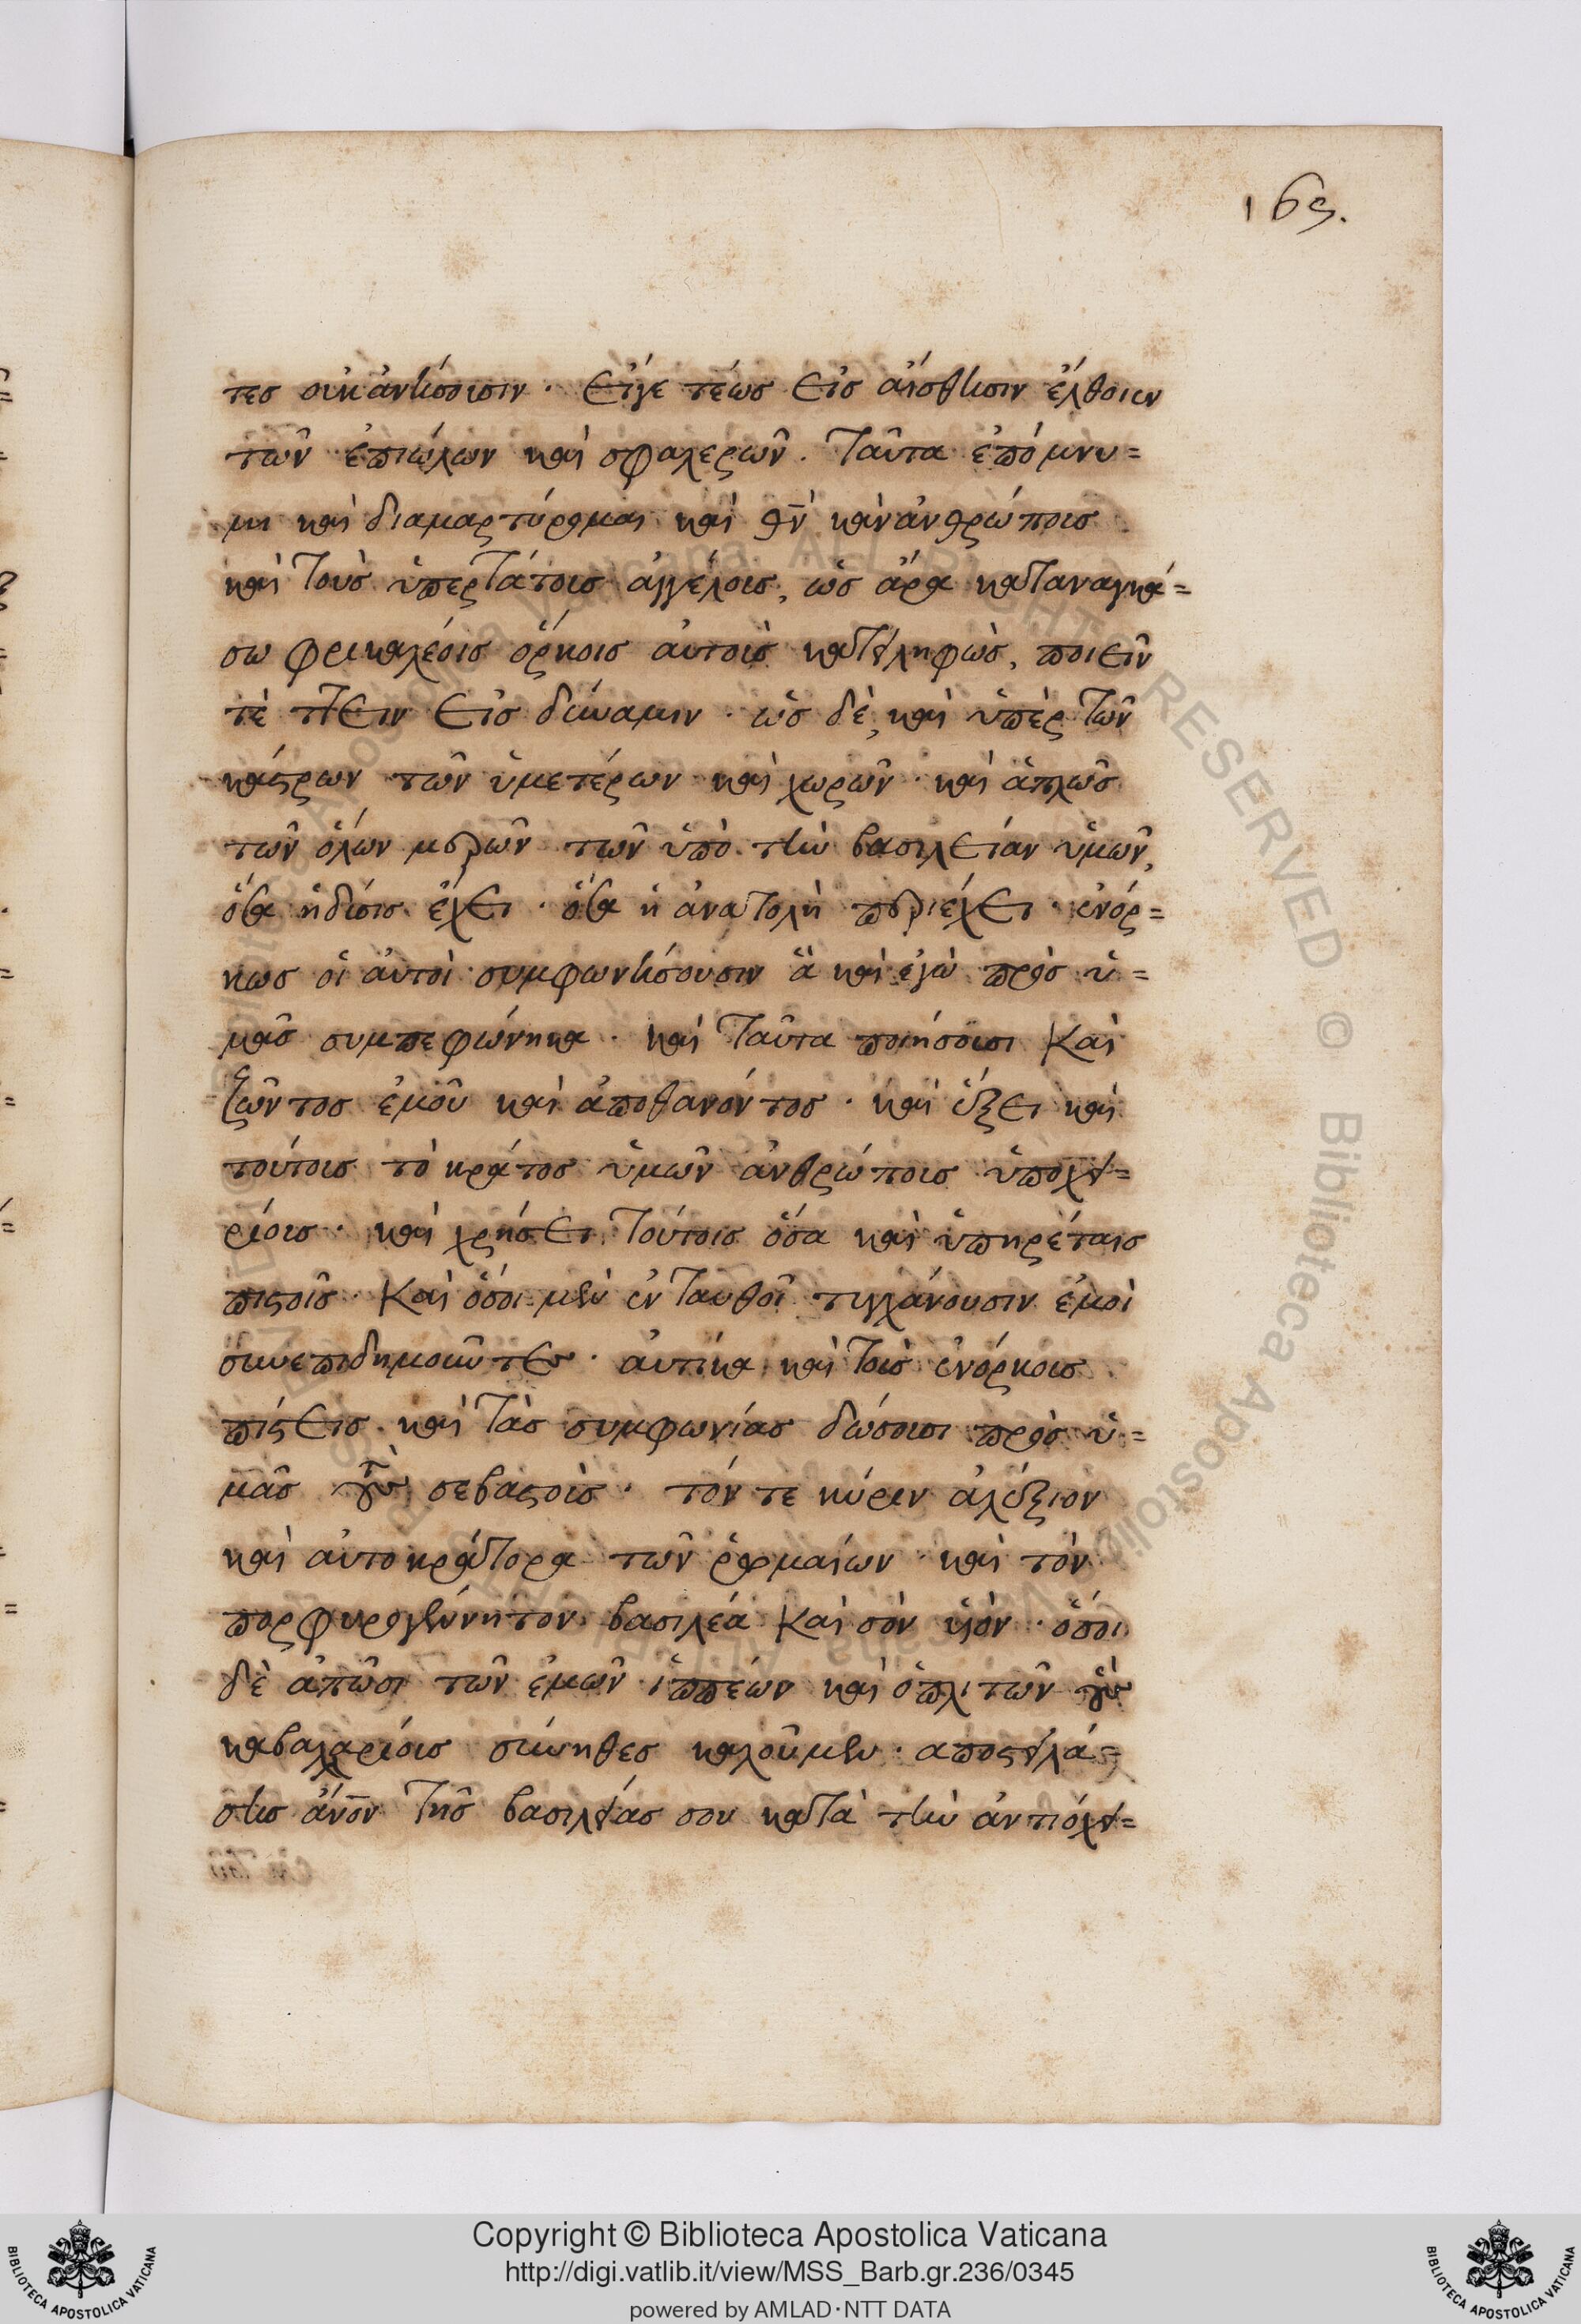 169.
τες οὐκ ἀνήσουσιν · εἴγε τέως εἰς αἴσθησιν ἔλθοιεν
τῶν ἐπιώλων καὶ σφαλερῶν. Ταῦτα ἐπόμνυ=
μι καὶ διαμαρτύρομαι καὶ θν̅ κἀν ἀνθρώποις
καὶ τοὺς ὑπερτάτοις ἀγγέλοις, ὡς ἄρα καταναγκά=
σω φρικαλέοις ὅρκοις αὐτοὺς κατειληφὼς, ποιεῖν
τὲ πτειν εἰς δύναμιν · ὡς δὲ, καὶ ὑπὲρ τῶν
κάστρων τῶν ὑμετέρων καὶ χωρῶν · καὶ ἁπλῶς
τῶν ὅλων μερῶν τῶν ὑπὸ τὴν βασιλείαν ὑμῶν,
ὅσα ἡ δύσις ἔχει · ὅσα ἡ ἀνατολὴ περιέχει · ἐνόρ=
κως οἱ αὐτοὶ συμφωνήσουσιν ἃ καὶ ἐγὼ πρὸς ὑ=
μᾶς συμπεφώνηκα · καὶ ταῦτα ποιήσουσι καὶ
ζῶντος ἐμοῦ καὶ ἀποθανόντος · καὶ ἕξει καὶ
τούτοις τὸ κράτος ὑμῶν ἀνθρώποις ὑποχει=
ρίοις · καὶ χρήσει τούτοις ὅσα καὶ ὑπηρέταις
πιστοῖς · Καὶ ὅσοι μὲν ἐνταυθοῖ τυγχάνουσιν ἐμοὶ
συνεπιδημοῦντες · αὐτίκα καὶ τοὺς ἐνόρκους
πίστεις καὶ τὰς συμφωνίας δώσουσι πρὸς ὑ=
μᾶς τοὺς σεβαστοὺς · τόν τε κύριν ἀλέξιον
καὶ αὐτοκράτορα τῶν ῥωμαίων · καὶ τὸν
πορφυρογέννητον βασιλέα καὶ σὸν υἱόν · ὁπόσοι
δὲ ἀπῶσι τῶν ἐμῶν ἱππέων καὶ ὁπλιτῶν οὓς
καβαλλαρίους σύνηθες καλοῦμεν · ἀποστειλά=
σης ἀνο̅ν τῆς βασιλείας σου κατὰ τὴν ἀντιόχει=
Copyright © Biblioteca Apostolica Vaticana
http://digi.vatlib.it/view/MSS_Barb.gr.236/0345
powered by AMLAD · NTT DATA